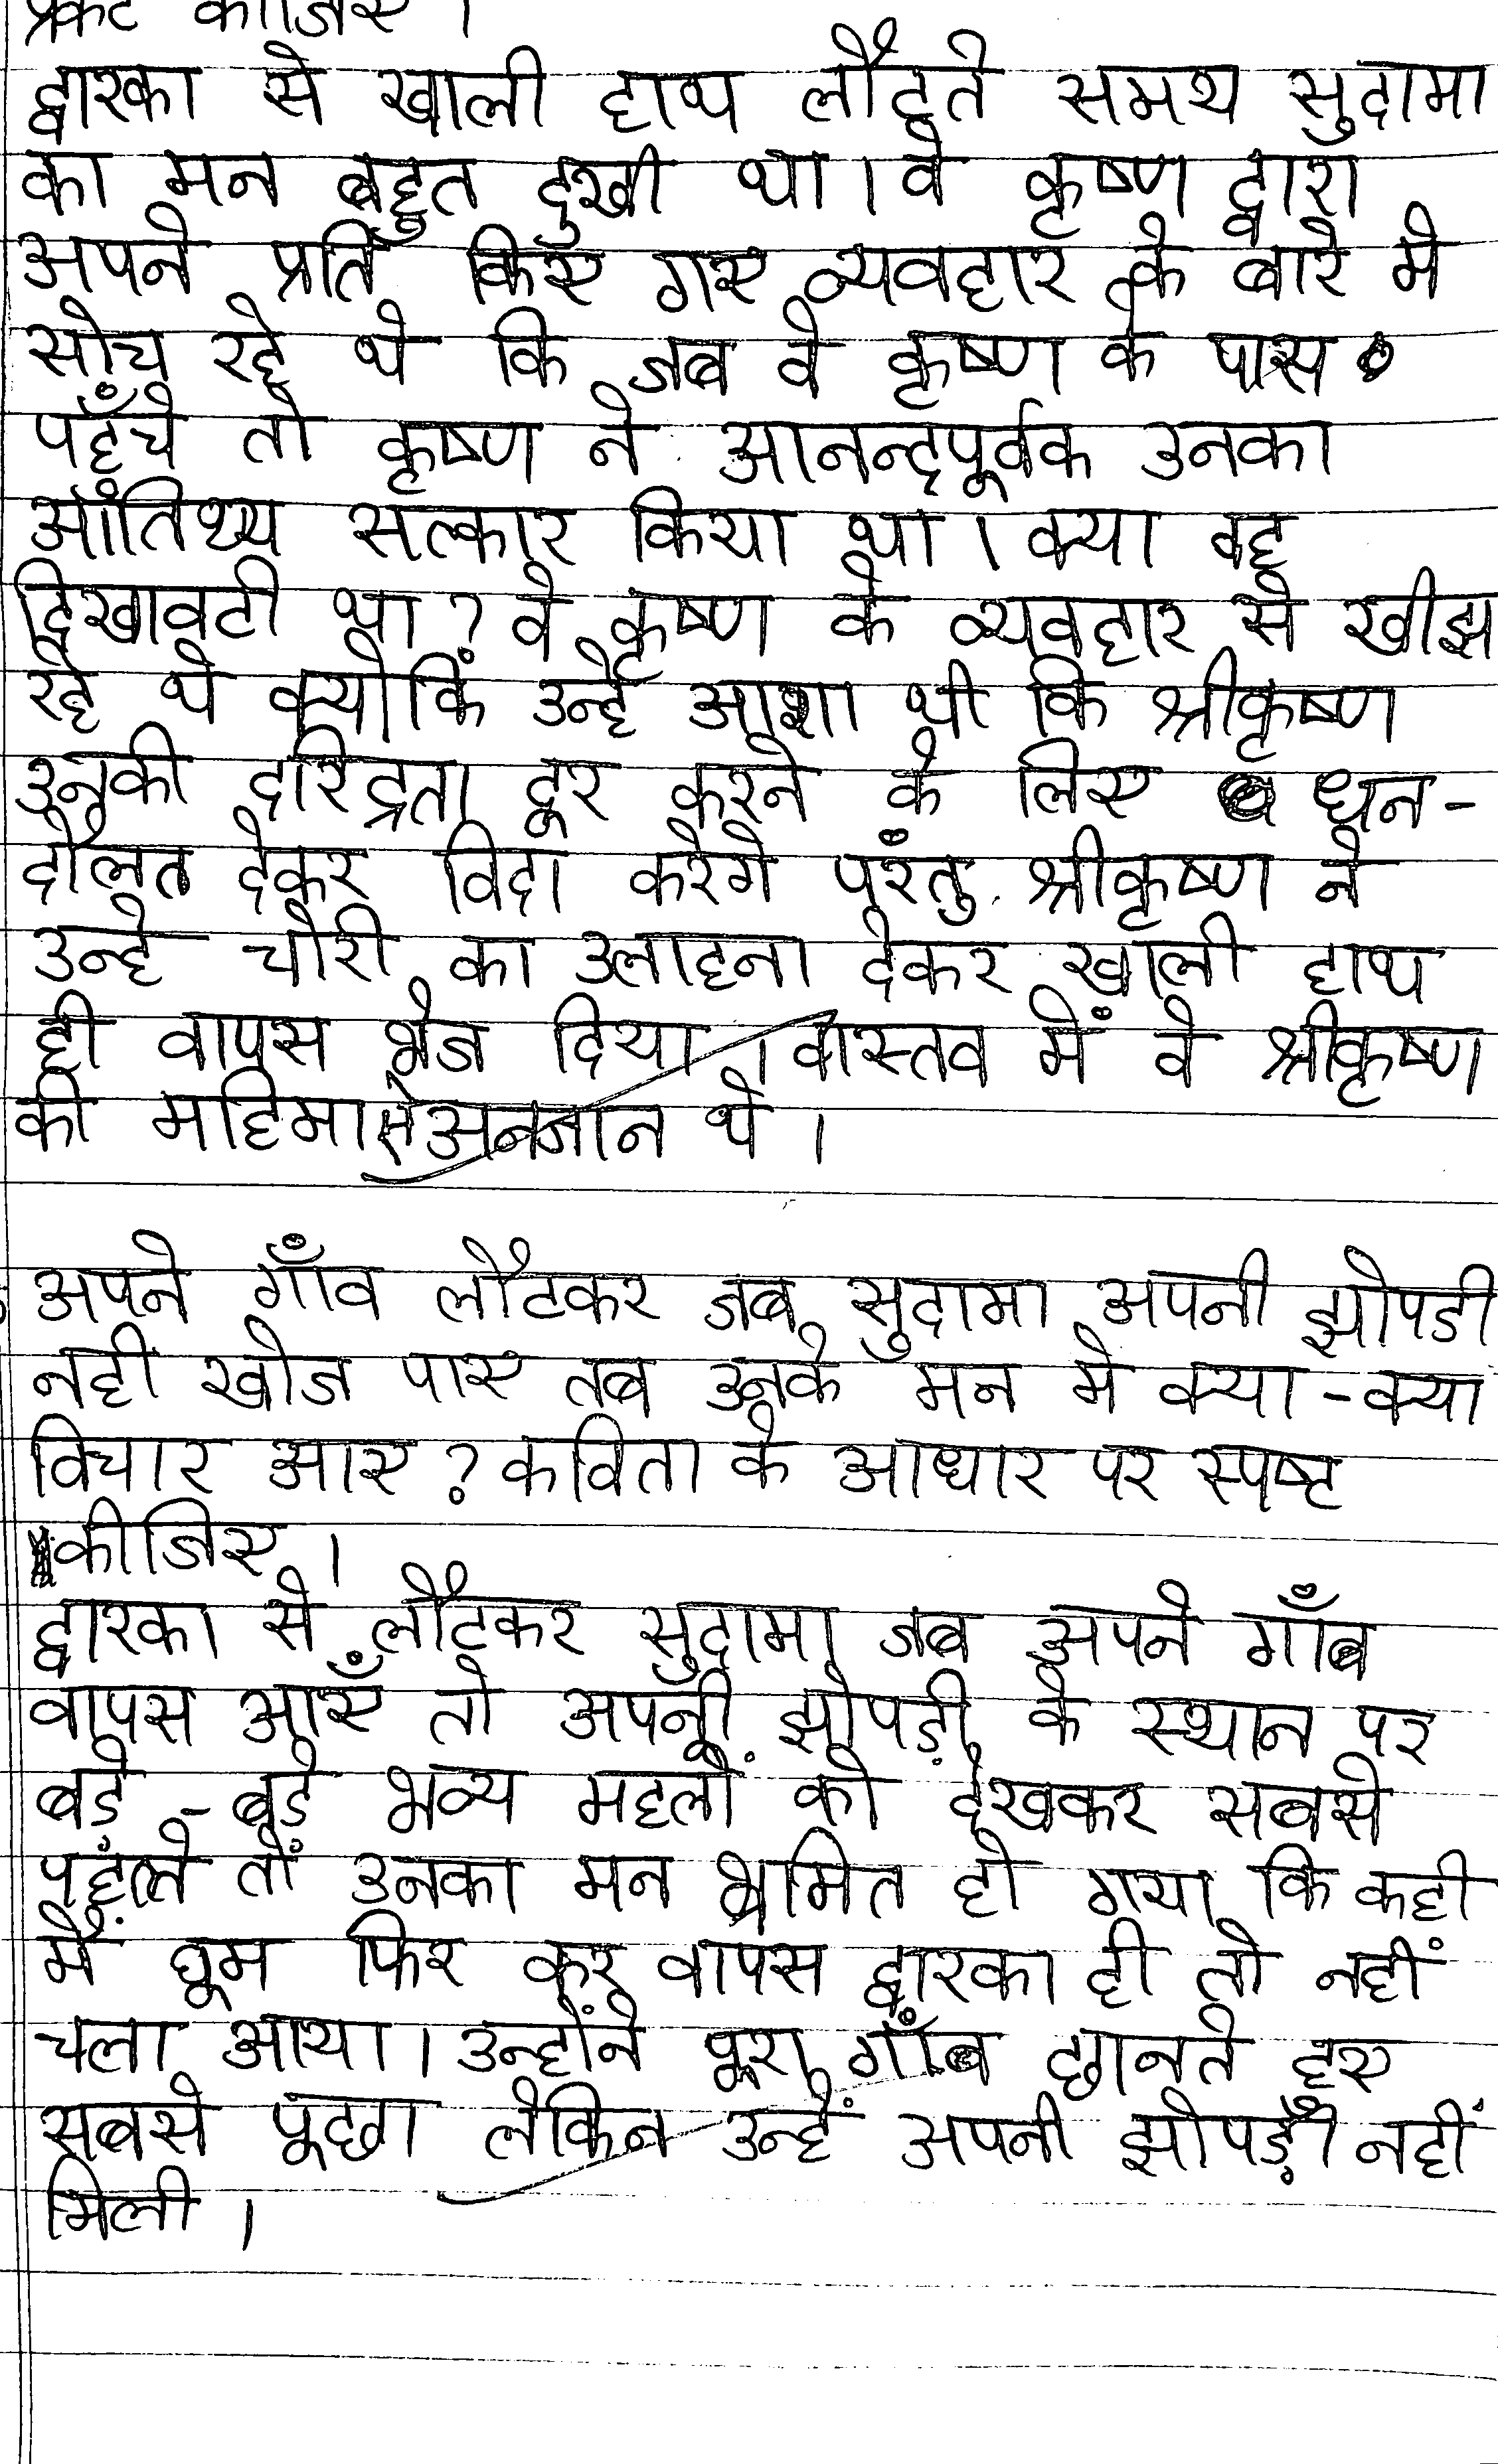 प्रकट कीजिए।
द्वारका से खाली हाथ लौटते समय सुदामा
का मन बहुत दुखी था। वे कृष्ण द्वारा
अपने प्रति किए गए व्यवहार के बारे मे
सोच रहे थे कि जब वे कृष्ण के पास
पहुँचे तो कृष्ण ने आनन्दपूर्वक उनका
आतिथ्य सत्कार किया था। क्या वह
दिखावटी था? वे कृष्ण के व्यवहार से खीझ
रहे थे क्योकिं उन्हे आशा थी कि श्रीकृष्ण
उनकी दरिद्रता दूर करने के लिए धन-
दौलत देकर विदा करेगे परंतु श्रीकृष्ण ने
उन्हे चोरी का उलाहना देकर खाली हाथ
ही वापस भेज दिया। वास्तव में वे श्रीकृष्ण
की महिमा से अनजान थे।
अपने गाँव लौटकर जब सुदामा अपनी झोपडी
नही खोज पाए तब उनके मन मे क्या-क्या
विचार आए? कविता के आधार पर स्पष्ट
कीजिए।
द्वारका से लौटकर सुदामा जब अपने गाँव
वापस आएँ तो अपनी झोपड़ी के स्थान पर
बड़े-बड़े भव्य महलों को देखकर सबसे
पहले तो उनका मन भ्रमित हो गया कि कही
मैं घूम फिर कर वापस द्वारका ही तो नहीं
चला आया। उन्होंने पूरा गाँव छानते हुए
सबसे पूछा लेकिन उन्हें अपनी झोपड़ी नहीं
मिली।